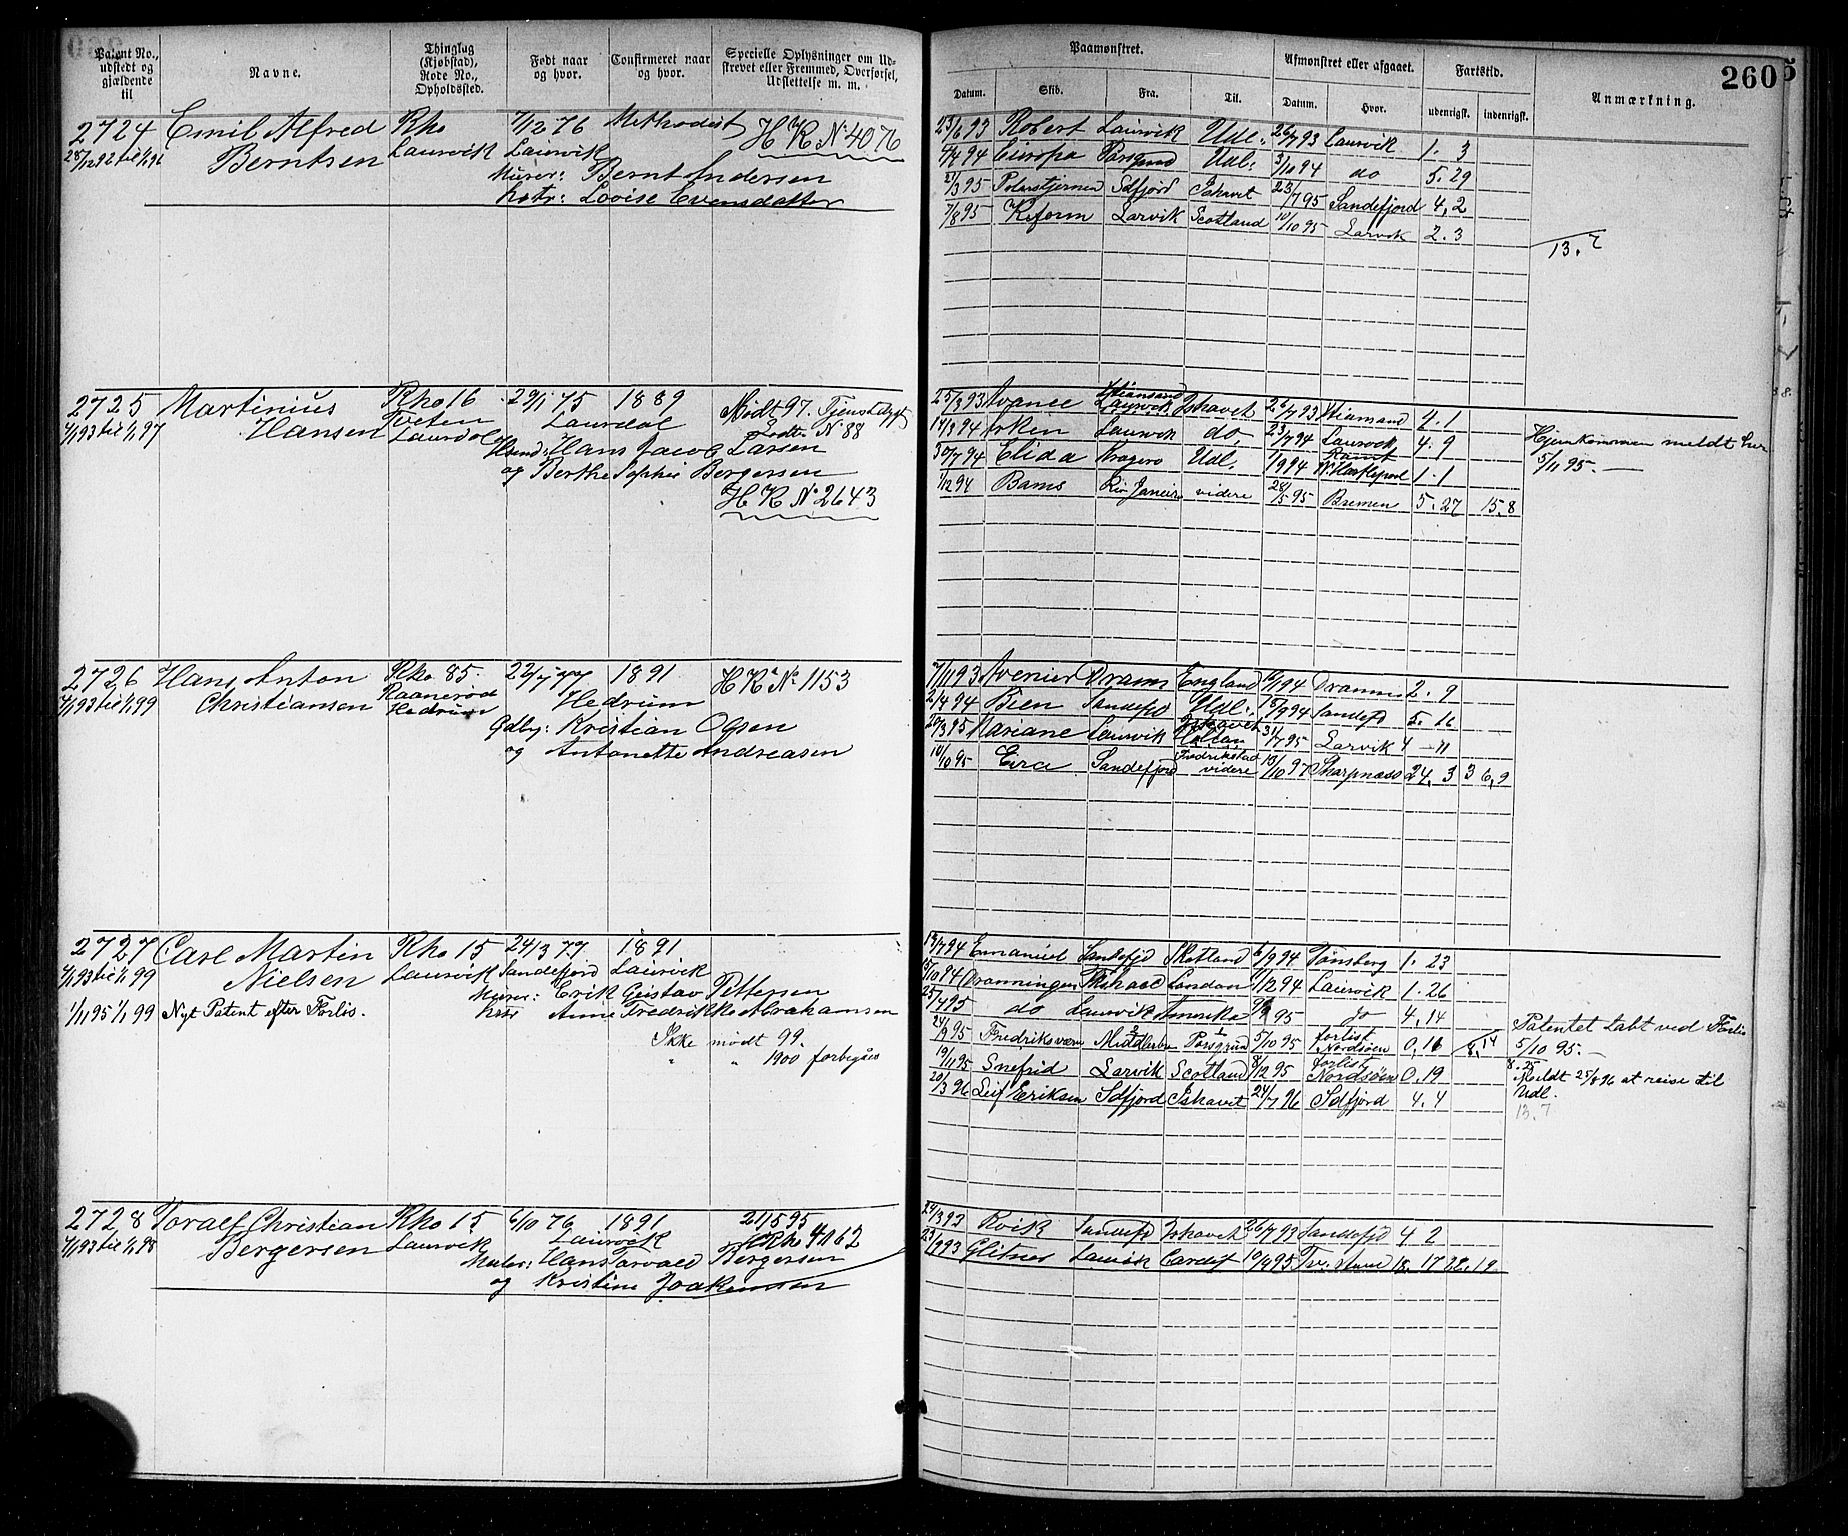 Patent No., udstedt og gjældende til
Navne.
Thinglag (Kjøbstad), Rode No., Opholdssted.
Født naar og hvor.
Confirmeret naar og hvor.
Specielle Oplysninger om Udstrevet eller Fremmed, Overførsel, Udslettelse m. m.
Paamønstret.
Afmønstret eller afgaaet.
Fartstid.
260
Datum.
Skib.
Fra.
Til.
Datum.
Hvor.
udenrigsk.
indenrigsk.
Anmærkning.
2724 Emil Alfred Rko 7/12 76 Methodist H R № 4076
28/12 92 til 1/1 96 Berntsen Laurvik Laurvik
Murer: Bernt Andersen
Kstr: Lovise Evensdatter
23/6 93 Robert Laurvik Udl. 26/7 93 Laurvik 1. 3
Europa Porsgrund Udl. 3/10 94 do 5. 29
21/3 95 Polarstjernen Sdfjord Ishavet 23/7 95 Sandefjord 4, 2
7/8 95 Reform Larvik Scotland 10/10 95 Larvik 2. 3
13. 7
2725 Martinius Rko 16 29/1 75 1889 Mødt 97. Tjenstdygt
4/1 93 til 1/1 97 Hansen Tveten Laurdal Lodtr. № 88
Laurdal
Hsmd: Hans Jacob Larsen
og Berthe Sophie Bergersen
H R № 2643
25/3 93 Avance Laurvik Ishavet 26/7 93 Xtiansand 2. 1
14/3 94 Arken Laurvik do. 23/7 94 Laurvik 4. 9
30/7 94 Elida Kragerø Udl. 1/9 94 W. Hartlepool 1. 1
1/12 94 Bams Rio Janeiro videre 28/5 95 Bremen 5. 27 15. 8
Hjemkommen meldt her
5/11 95.
2726 Hans Anton Rko 85. 22/7 77 1891 H R № 1153
4/1 93 til 1/1 99 Christiansen Raanerød Hedrum
Hedrum
Gdbr: Kristian Olsen
og Antonette Andreasen
7/11 93 Avenier Dram England Drammen 2. 9
2/4 94 Bien Sandefjd Udl. 18/9 94 Sandefjd 5. 16
20/3 95 Mariane Laurvik Ishavet 31/7 95 Larvik 4 - 11
14/10 95 Eira Sandefjord Fredrikstad videre 18/10 97 Skarpnæss 24. 3 36,9
2727 Carl Martin Rko 15 24/3 77. 1891
4/1 93 til 1/1 99 Nielsen Laurvik Sandefjord Laurvik
Murer: Erik Gustav Pettersen
1/11 95 1/1 99 Nyt Patent efter Forlis. Anne Fredrikke Abrahamsen
Ikke mødt 99.
" " 1900 forbigåes
13/7 94 Emanuel Sandefjd Skotland 6/9 94 Tønsberg 1. 23
15/10 94 Dronningen London 11/12 94 Laurvik 1. 26
25/4 95 do Laurvik Amerika do 4, 14
24/9 95 Fredriksværn Porsgrund 5/10 95 forlist Nordsøen 0, 16
8. 14
19/11 95 Snefrid Larvik Scotland 8/12 95 forlist Nordsøen 0. 19
20/3 96 Leif Eriksen Sdfjord Ishavet 24/7 96 Sdfjord 4. 4
Patentet tabt ved Forlis
5/10 95.
Meldt 25/8 96 at reise til
Udl.
13. 7
2728 Toralf Christian Rko 15 6/10 76 1891 21/5 95
4/1 93 til 1/1 98 Bergersen Laurvik Laurvik 4062
Maler: Hans Torvald Bergersen
og Kristine Joakimsen
Kvik Sandefjd Ishavet 26/7 93 Sandefjd 4 2
Glitner Laurvik Cardif 18. 17 22. 19